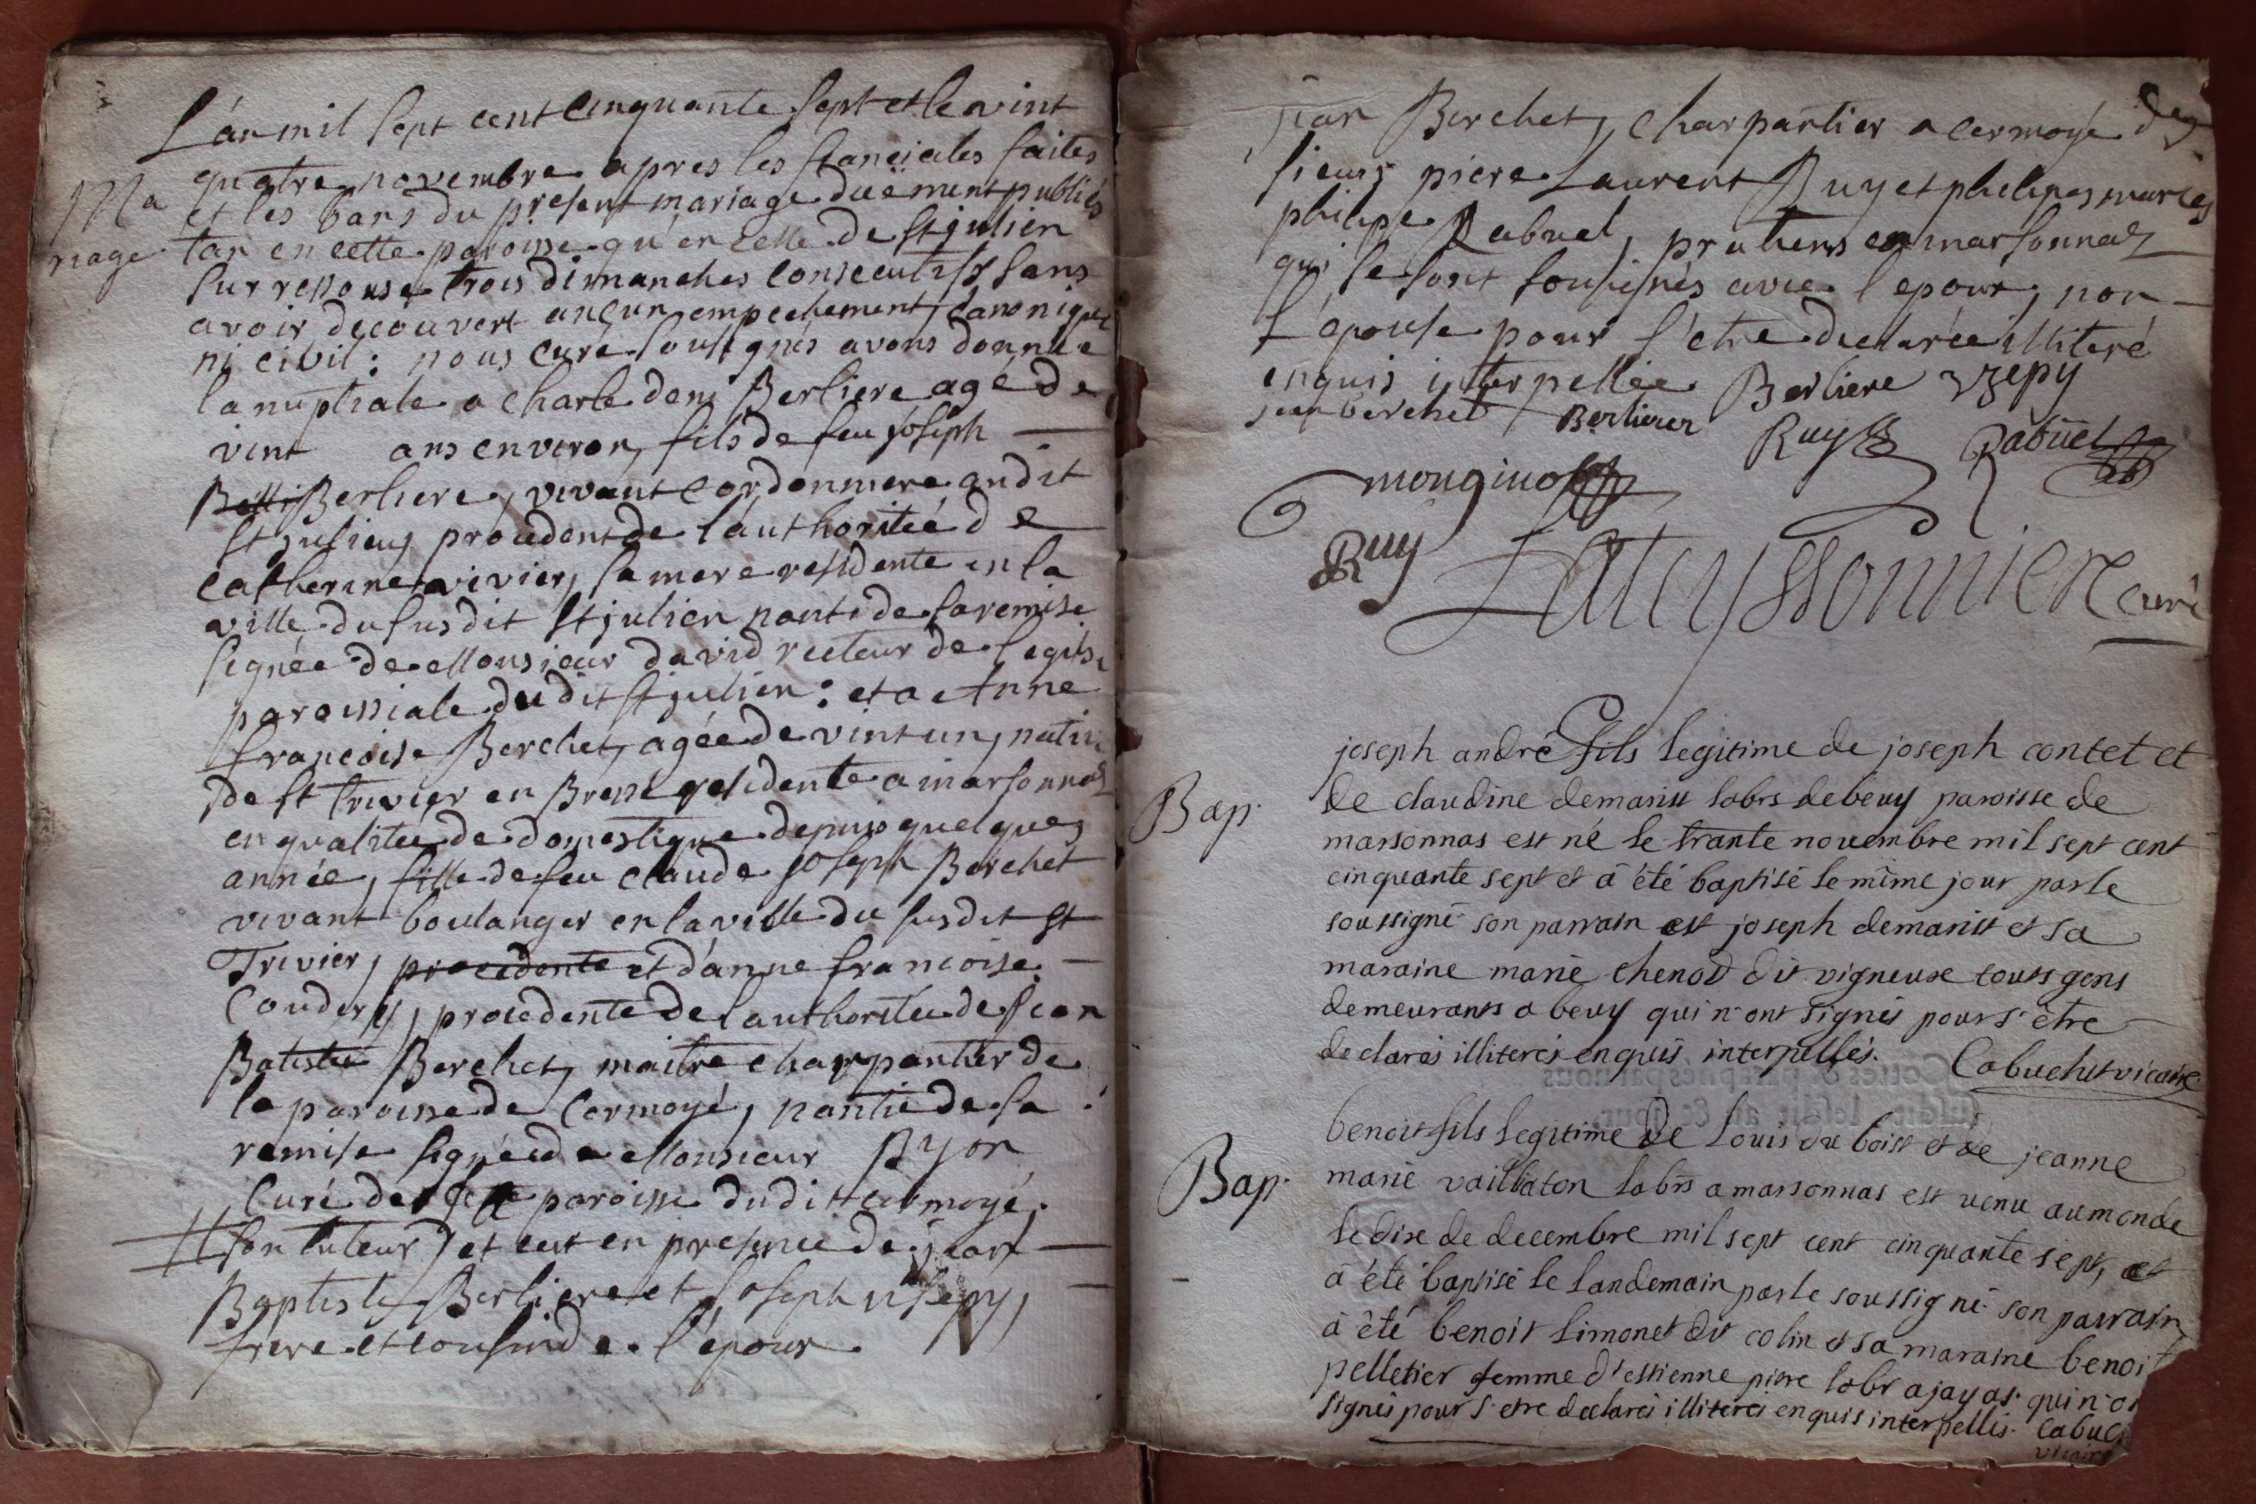 L'an mil sept cent cinquante sept et le vint
quatre novembre apres les fianciales faites
Ma
riage
et les bans du present mariage duëment publiés
tan en cette paroisse qu'en celle de St julien
sur ressouse trois dimanches consecutifs sans
avoir decouvert aucun empechement canonique
ni civil: nous curé soussignés avons donnée
la nuptiale a charle deni Berliere agé de
vint ans environ, fils de feu joseph
Berliere, vivant cordonniere audit
St julien, procedent de l'authoritée de
catherine vivier, sa mere residente en la
ville du susdit St julien nanti de sa remise
signée de Monsieur david recteur de l'eglise
paroissiale du dit St julien: et a Anne
françoise Berchet, agée de vint un, native
de St Trivier en Bresse residente a marsonnas
en qualitée de domestique depuis quelques
année, fille de feu claude joseph Berchet
vivant boulanger en la ville du susdit St
Trivier, procedente et d'anne francoise
Coudery, procedente de l'authoritée de jean
Batiste Berchet, maitre charpantier de
la paroisse de Cormoyé, nantie de sa
remise signée de Monsieur Ryon
Curé de paroisse dudit cormoyé,
son tuteur, et cest en presence de jean
Baptiste Berliere et joseph
frere et cousin de l'epoux
jean Berchet, charpantier a cermoyé des
sieurs piere Laurent Ruy et philipes
philipe Rabuel, pratiens en marsonnas
qui se sont soussignés avec l'epoux, non
l'epouse pour s'etre declarée illiteré
enquis interpellée. Berliere zzepy
jean berchet Berlierer Ruy Rabuel
monginot
Ruy Lateyssonniere curé
Bap.
joseph andré fils legitime de joseph contet et
de claudine demarist labrs de beuy paroisse de
marsonnas est né le trante novembre mil sept cent
cinquante sept et à été baptisé le même jour par le
soussigné son parrain est joseph demarist et sa
maraine marie chenod dit vigneuse touts gens
demeurants a beuy qui n'ont signés pour s'être
declarés illiterés enquis interpellés. Cabuchet vicaire
Bap.
benoit fils legitime de Louis du boist et de jeanne
marie vaillaton labrs a marsonnas est venu au monde
le dix de decembre mil sept cent cinquante sept, et
à été baptisé le landemain par le soussigné son parrain
à été benoit simonet dit colin et sa maraine benoit
pelletier femme d'estienne pirre labr a jayas. qui n'o
signés pour s'etre declarés illiterés enquis interpellés. Cabuc
vicaire